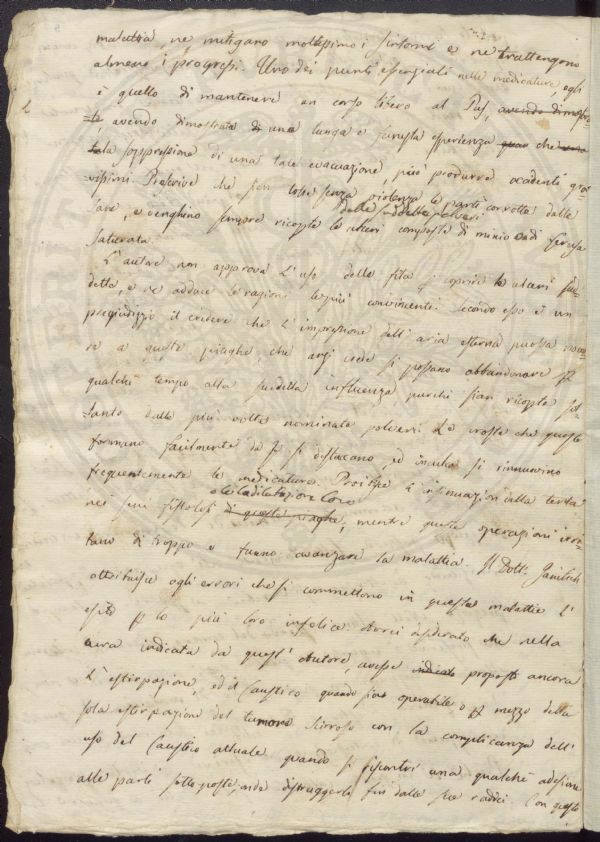 malattia, ne mitigano moltissimo i sintomi e ne trattengono
almeno i progressi. Uno dei punti essenziali nelle medicature, egli
è quello di mantenere un corso libero al Pus, avendo dimostra-
to, avendo dimostrata di una lunga e funesta esperienza que che una
tala soppressione di una tale evacuazione, può produrre accidenti gra-
vissimi. Prescrive che sian tolte senza violenza le parti corrotte dalle
dalle suddette polveri
e venghino sempre ricoperte le ulceri composte di minio o di Cerussa
saturata.
L'autore non approva l'uso delle fila p coprire le ulceri sud-
dette, e ne adduce le ragioni le più convincenti. Secondo esso è un
pregiudizio il credere che l'impressione dell'aria esterna possa nuoce-
re a queste piaghe, che anzi crede si possano abbandonare p
qualche tempo alla suddetta influenza purché sian ricoperte sol-
tanto dalle più volte nominate polveri. Le croste che queste
formano facilmente da se si distaccano, ed si rinnuovino
frequentemente le medicature. Proibisce l'insinuazion della tenta
e la dilatazione loro
nei seni fistolosi di queste piaghe, mentre queste operazioni irri-
tano di troppo e fanno avanzare la malattia. Il Dott.
attribuisce agli errori che si commettono in queste malattie l'
esito p lo più loro infelice. desiderato che nella
cura indicata da quest'Autore, avesse indicato proposti ancora
l'estirpazione, ed il Caustico quando sian operabile o p mezzo della
sola estirpazione del tumore scirroso con la complicanza dell'
uso del Caustico attuale quando si riscontri una qualche adesione
alle parti sottoposte, onde distruggerlo fin dalle sue radici. Con questo